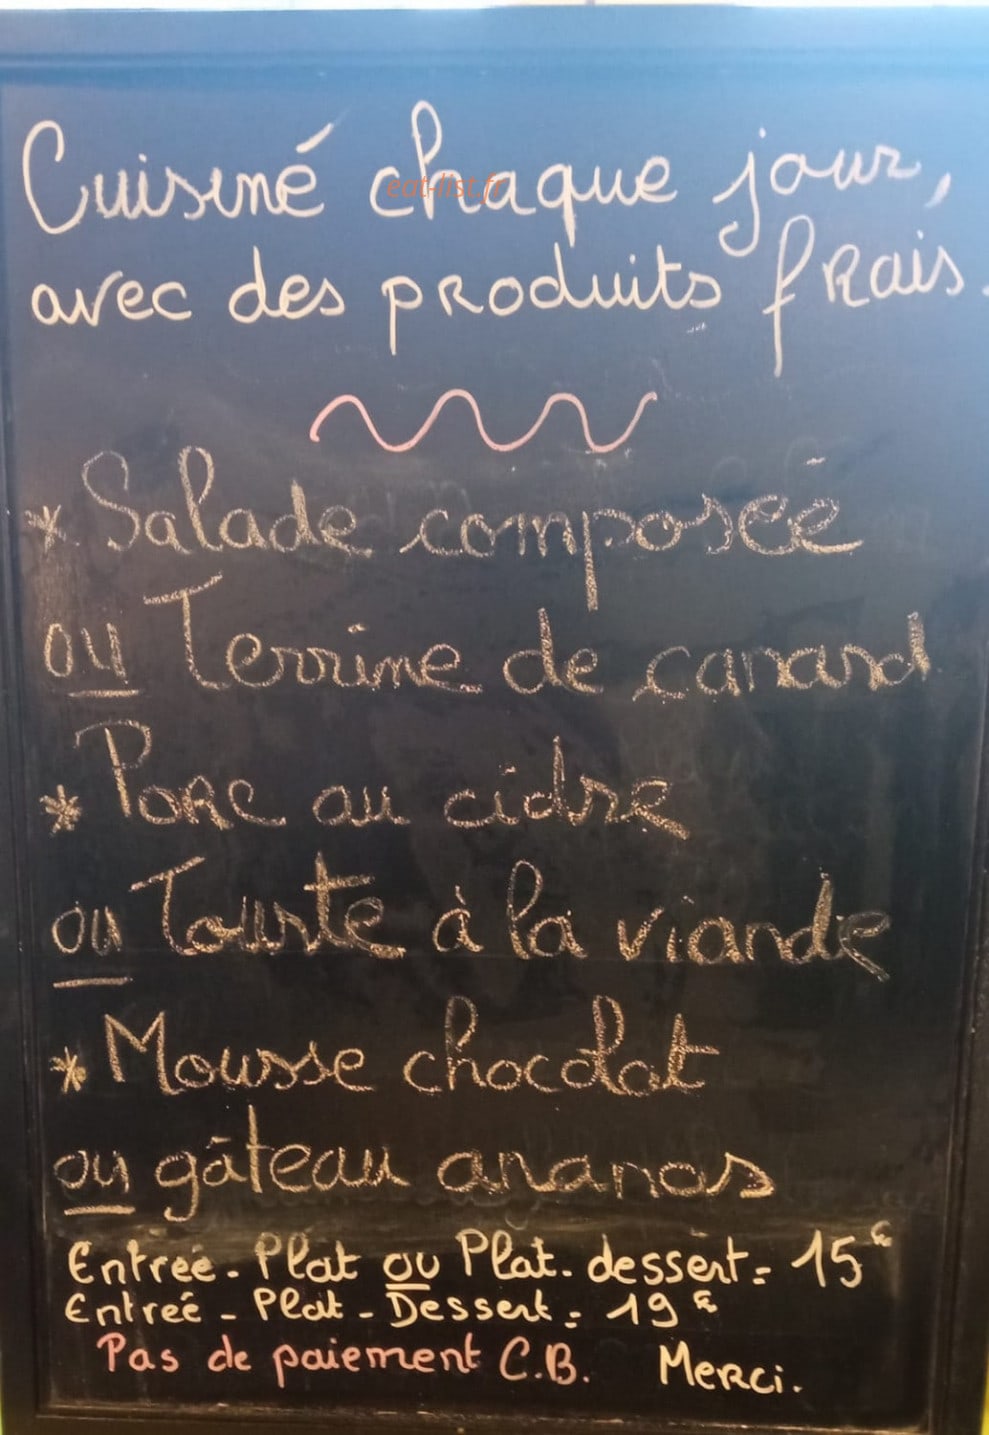 Cuisiné chaque jour,
eat-list.fr
avec des produits frais.
* Salade composée
ou Terrine de canard
* Porc au cidre
ou Tourte à la viande
* Mousse chocolat
ou gâteau ananas
Entrée - Plat ou Plat - dessert = 15€
Entrée - Plat - Dessert = 19€
Pas de paiement C.B. Merci.